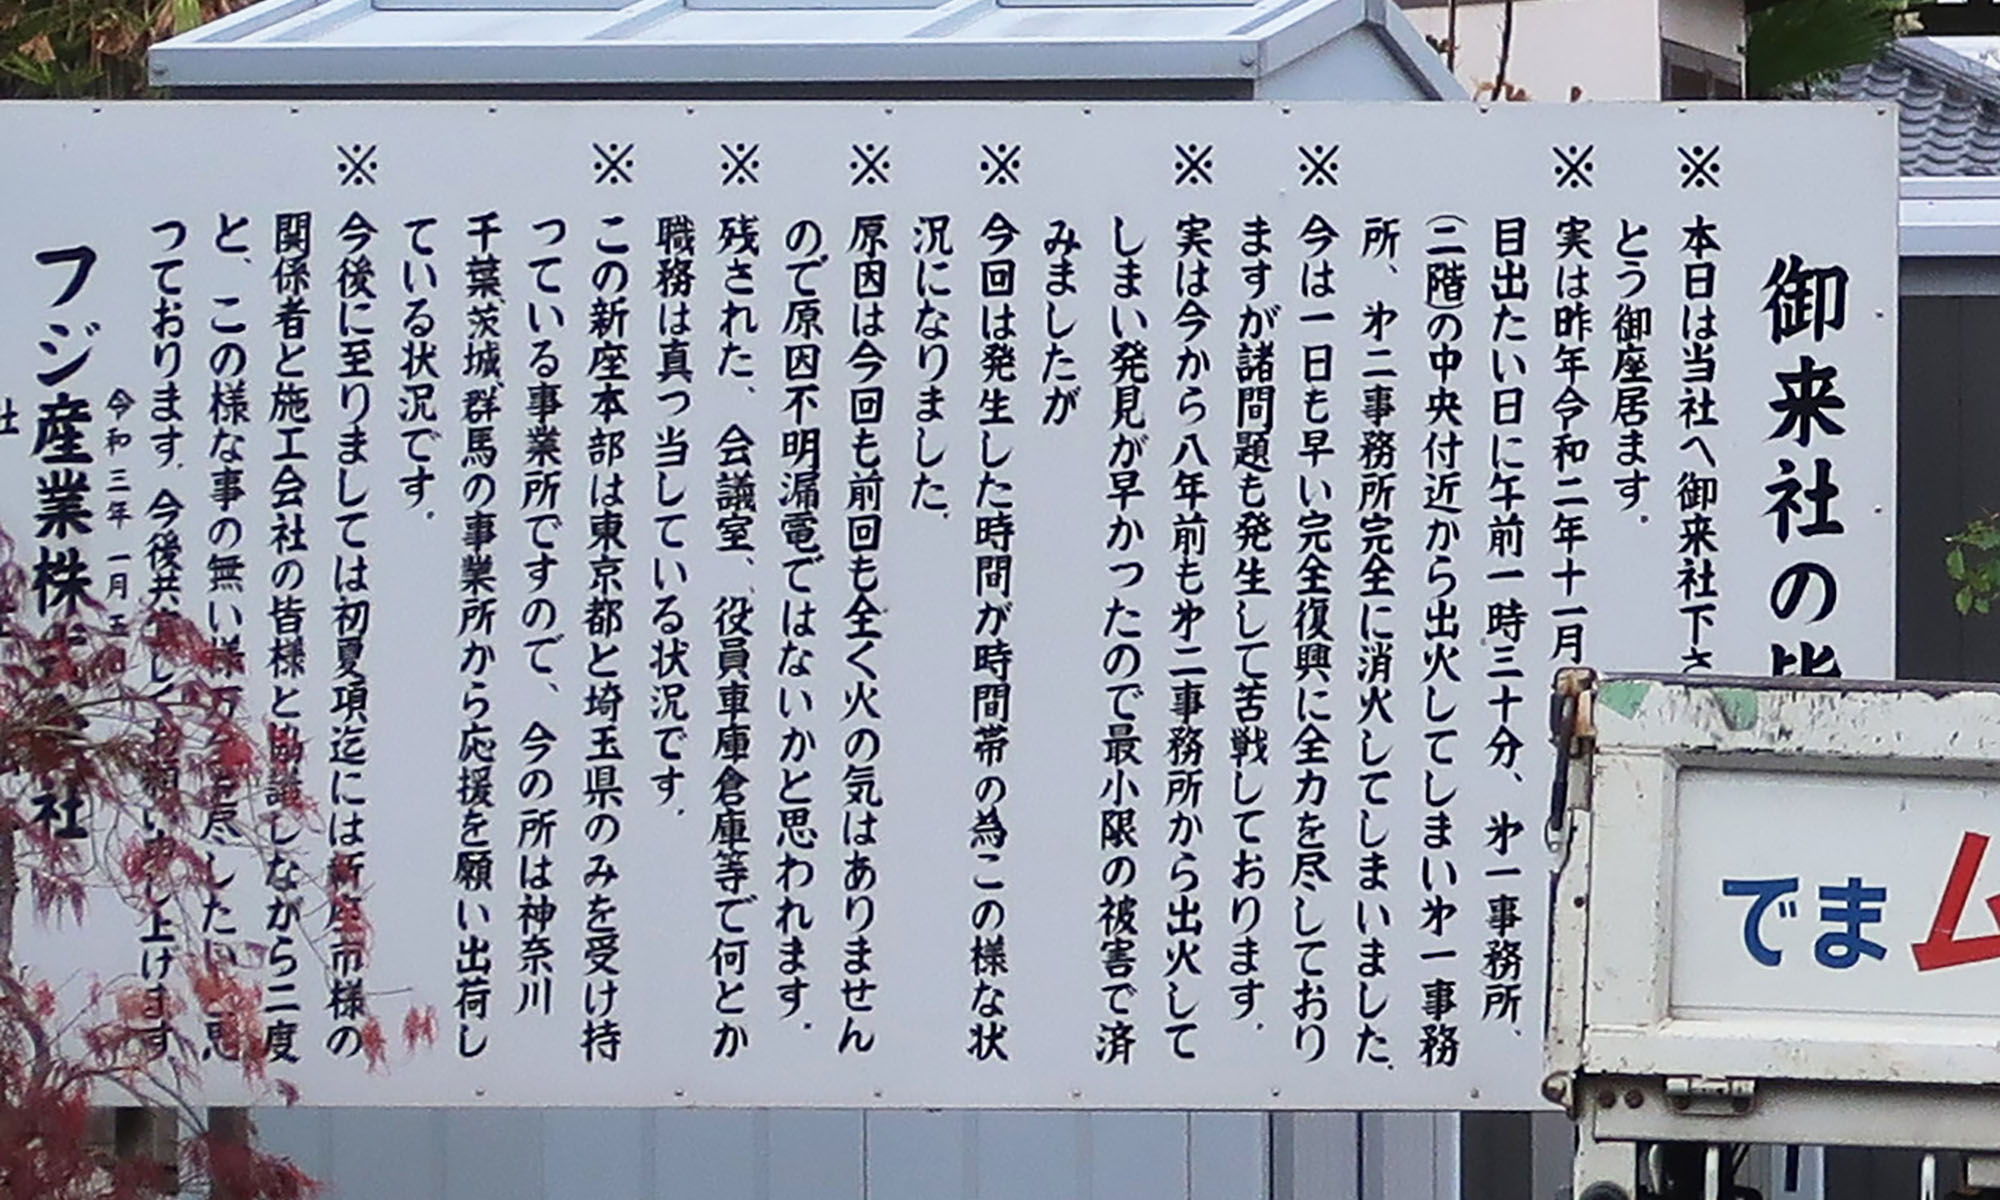 御来社の皆
※ 本日は当社へ御来社下さ
とう御座居ます.
※ 実は昨年令和二年十一月
目出たい日に午前一時三十分、㐧一事務所、
(二階)の中央付近から出火してしまい㐧一事務
所、㐧二事務所完全に消火してしまいました.
※ 今は一日も早い完全復興に全力を尽しており
ますが諸問題も発生して苦戦しております.
※ 実は今から八年前も㐧二事務所から出火して
しまい発見が早かったので最小限の被害で済
みましたが
※ 今回は発生した時間が時間帯の為この様な状
況になりました.
※ 原因は今回も前回も全く火の気はありません
ので原因不明漏電ではないかと思われます.
※ 残された、会議室、役員車庫倉庫等で何とか
職務は真っ当している状況です.
※ この新座本部は東京都と埼玉県のみを受け持
っている事業所ですので、今の所は神奈川
千葉、茨城、群馬の事業所から応援を願い出荷し
ている状況です.
※ 今後に至りましては初夏項迄には新座市様の
関係者と施工会社の皆様と協議しながら二度
と、この様な事の無い様 尽したい 思
っております. 今後共 しくお願い申し上げます.
令和三年一月五日
フジ産業株式会社
社
でまム